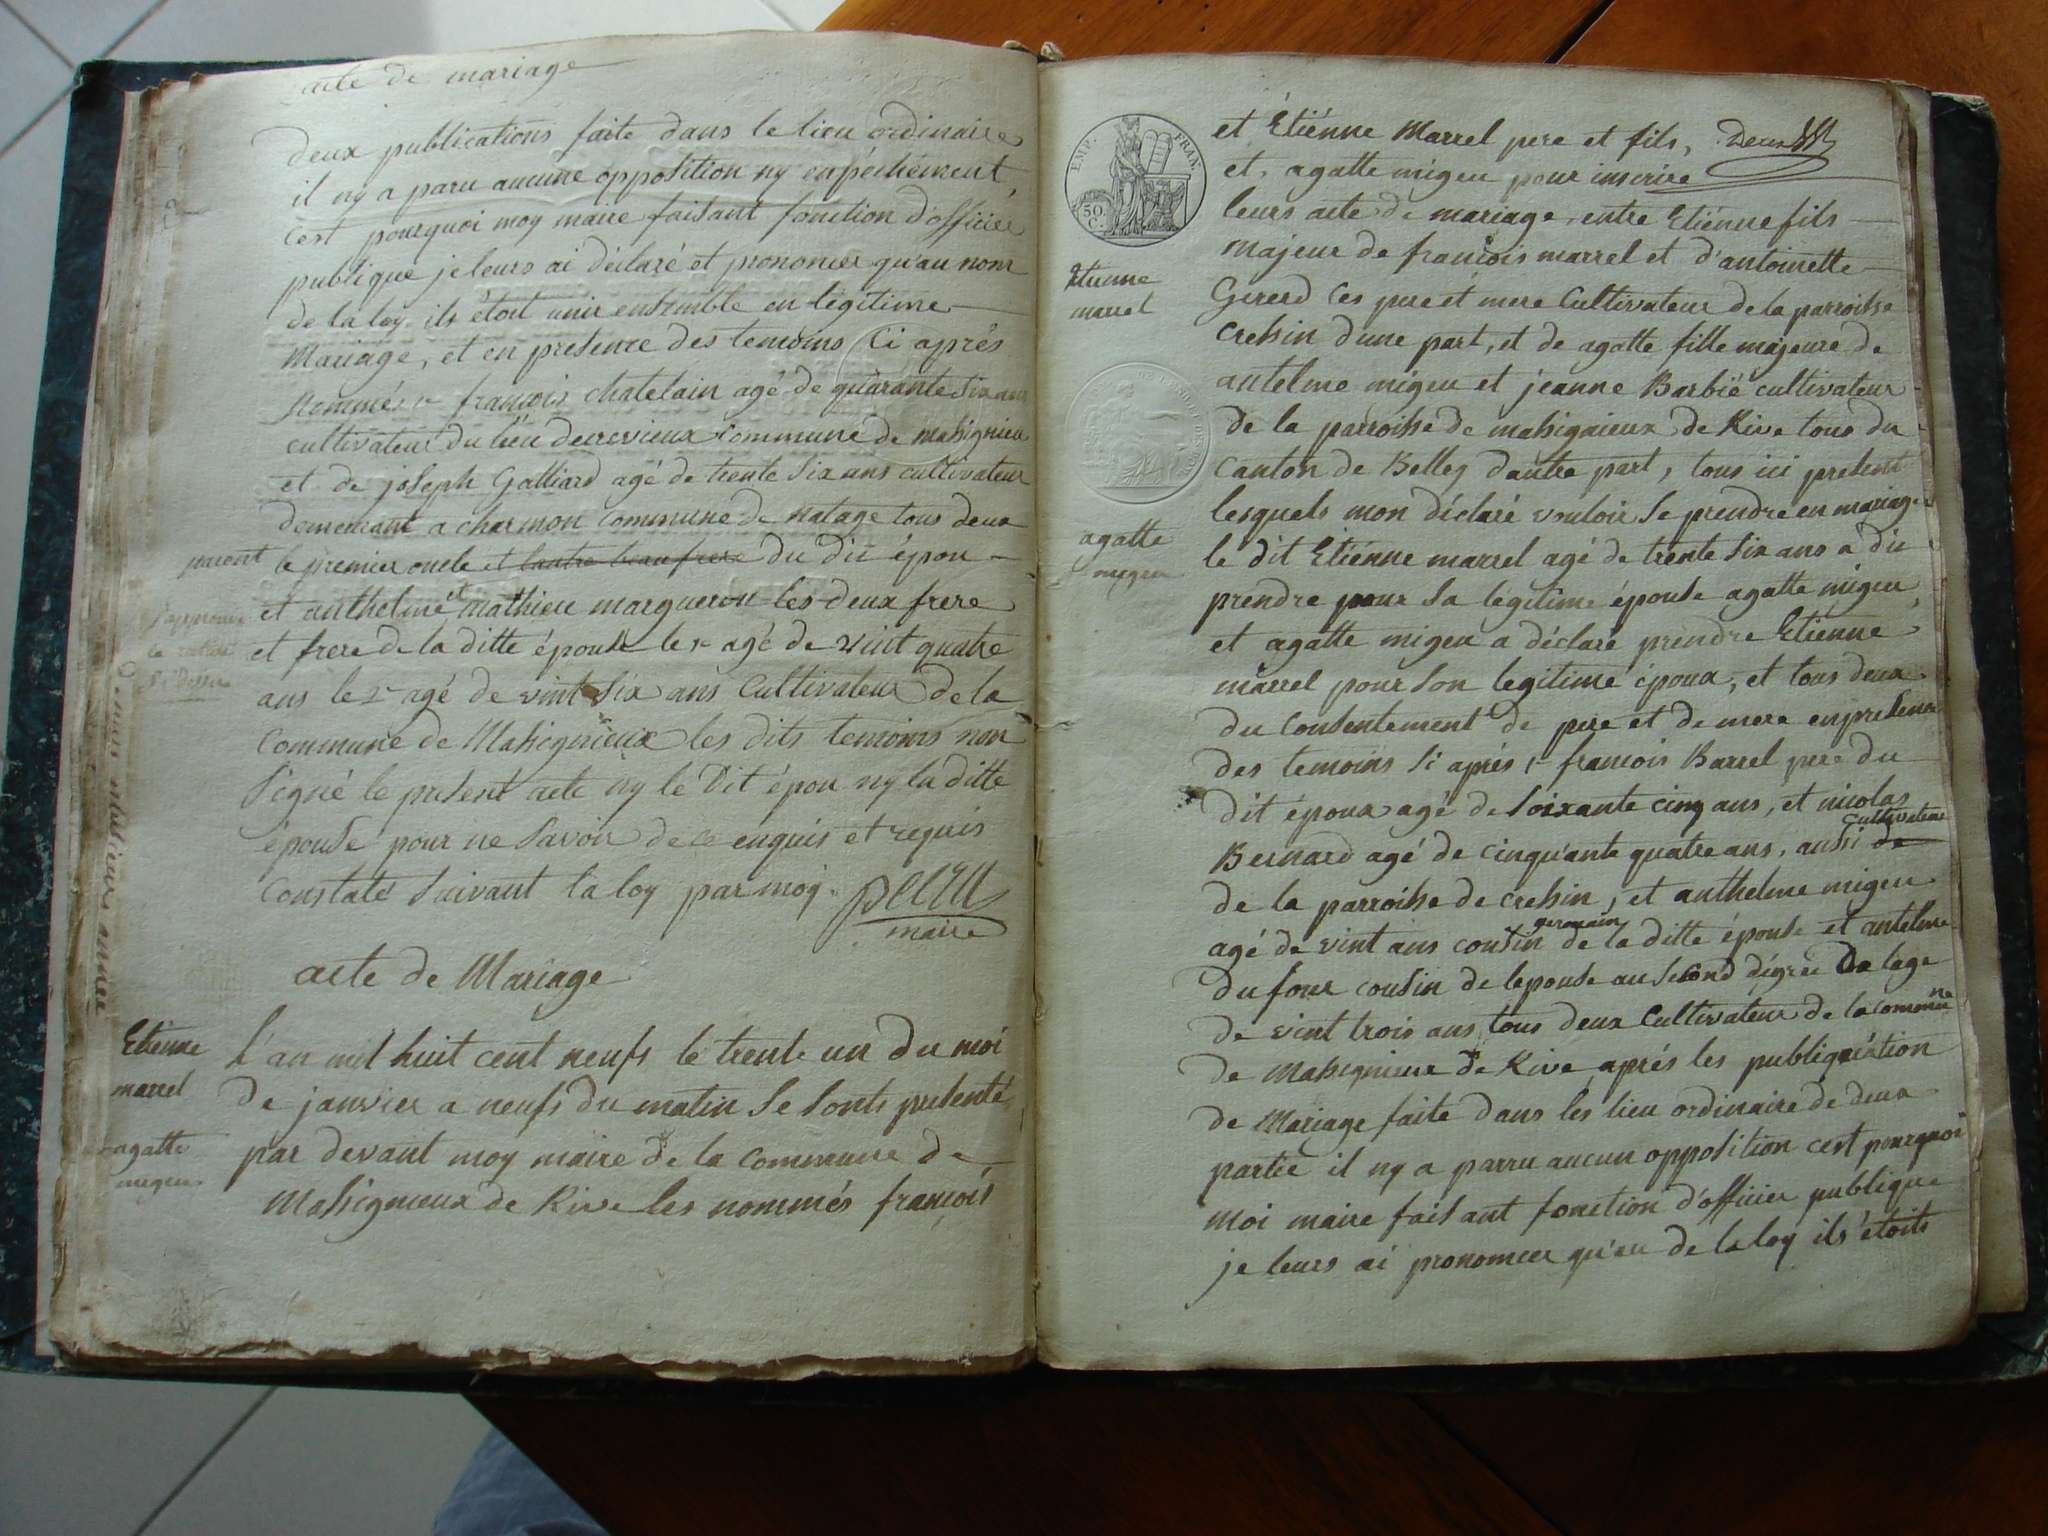 acte de mariage
deux publications faite dans le lieu ordinaire
il ny a paru aucune opposition ny enpéchément,
cest pourquoi moy maire faisant fonction d'officier
publique je leurs ai déclaré et prononcer qu'au nom
de la loy ils étoit unir ensemble en légitime
Mariage, et en présence des temoins Ci après
Nommés 1r françois chatelain agé de quarante six ans
cultivateur du lieu de crevieux commune de Massignieu
et de joseph Galliard agé de trente six ans cultivateur
demeurant a charmon commune de natage tous deux
parent le premier oncle et lautre beau frere du dit épou
et anthelme et mathieu margueron les deux frere
et frere de la ditte épouse le 1r agé de vint quatre
ans le 2r agé de vint six ans Cultivateur de la
Commune de Massignieux les dits temoins non
Signé le présent acte ny le Dit épou ny la ditte
épouse pour ne Savoir de ce enquis et requis
Constaté Suivant la loy par moy.
maire
japprouve
la rature
Ci Dessu
acte de Mariage
Etiénne
marrel
agatte
migeu
L'an mil huit cent neufs le trente un du moi
de janvier a neufs du matin Se Sonts présenté
par devant moy maire de la commune de
Massignieux de Rive les nommés françois
EMP. FRAN.
50 C.
et Étiénne Marrel pere et fils,
et, agatte migeu pour inscrire
leurs acte de mariage, entre Etiénne fils
majeur de françois marrel et d'antoinette
Gererd Ces pere et mere Cultivateur de la parroisse
Cressin d'une part, et de agatte fille majeure de
antelme migeu et jeanne Barbié cultivateur
de la parroisse de massignieux de Rive tous du
Canton de Belley dautre part, tous ici présent
lesquels mon déclaré vouloir Se prendre en mariage
le dit Etiénne marrel agé de trente Six ans a dit
prendre pour Sa légitime épouse agatte migeu,
et agatte migeu a déclaré prendre Etiénne
marrel pour Son legitime époux, et tous deux
du Consentement de pere et de mere en présence
des temoins Si après 1r françois Barrel pere du
dit époux agé de Soixante cinq ans, et nicolas
cultivateur
Bernard agé de cinquante quatre ans, aussi de
de la parroisse de cressin, et anthelme migeu
agé de vint ans cousin germain de la ditte épouse et antelme
dufour cousin de lepouse au Second dégrée De lage
de vint trois ans, tous deux Cultivateur de la commune
de Massignieux de Rive après les publiquéation
de Mariage faite dans les lieu ordinaire de deux
partie il ny a parru aucun opposition cest pourquoi
moi maire faisant fonction d'officier publique
je leurs ai prononcer qu'au de la loy ils étoits
Etienne
marrel
agatte
migeu